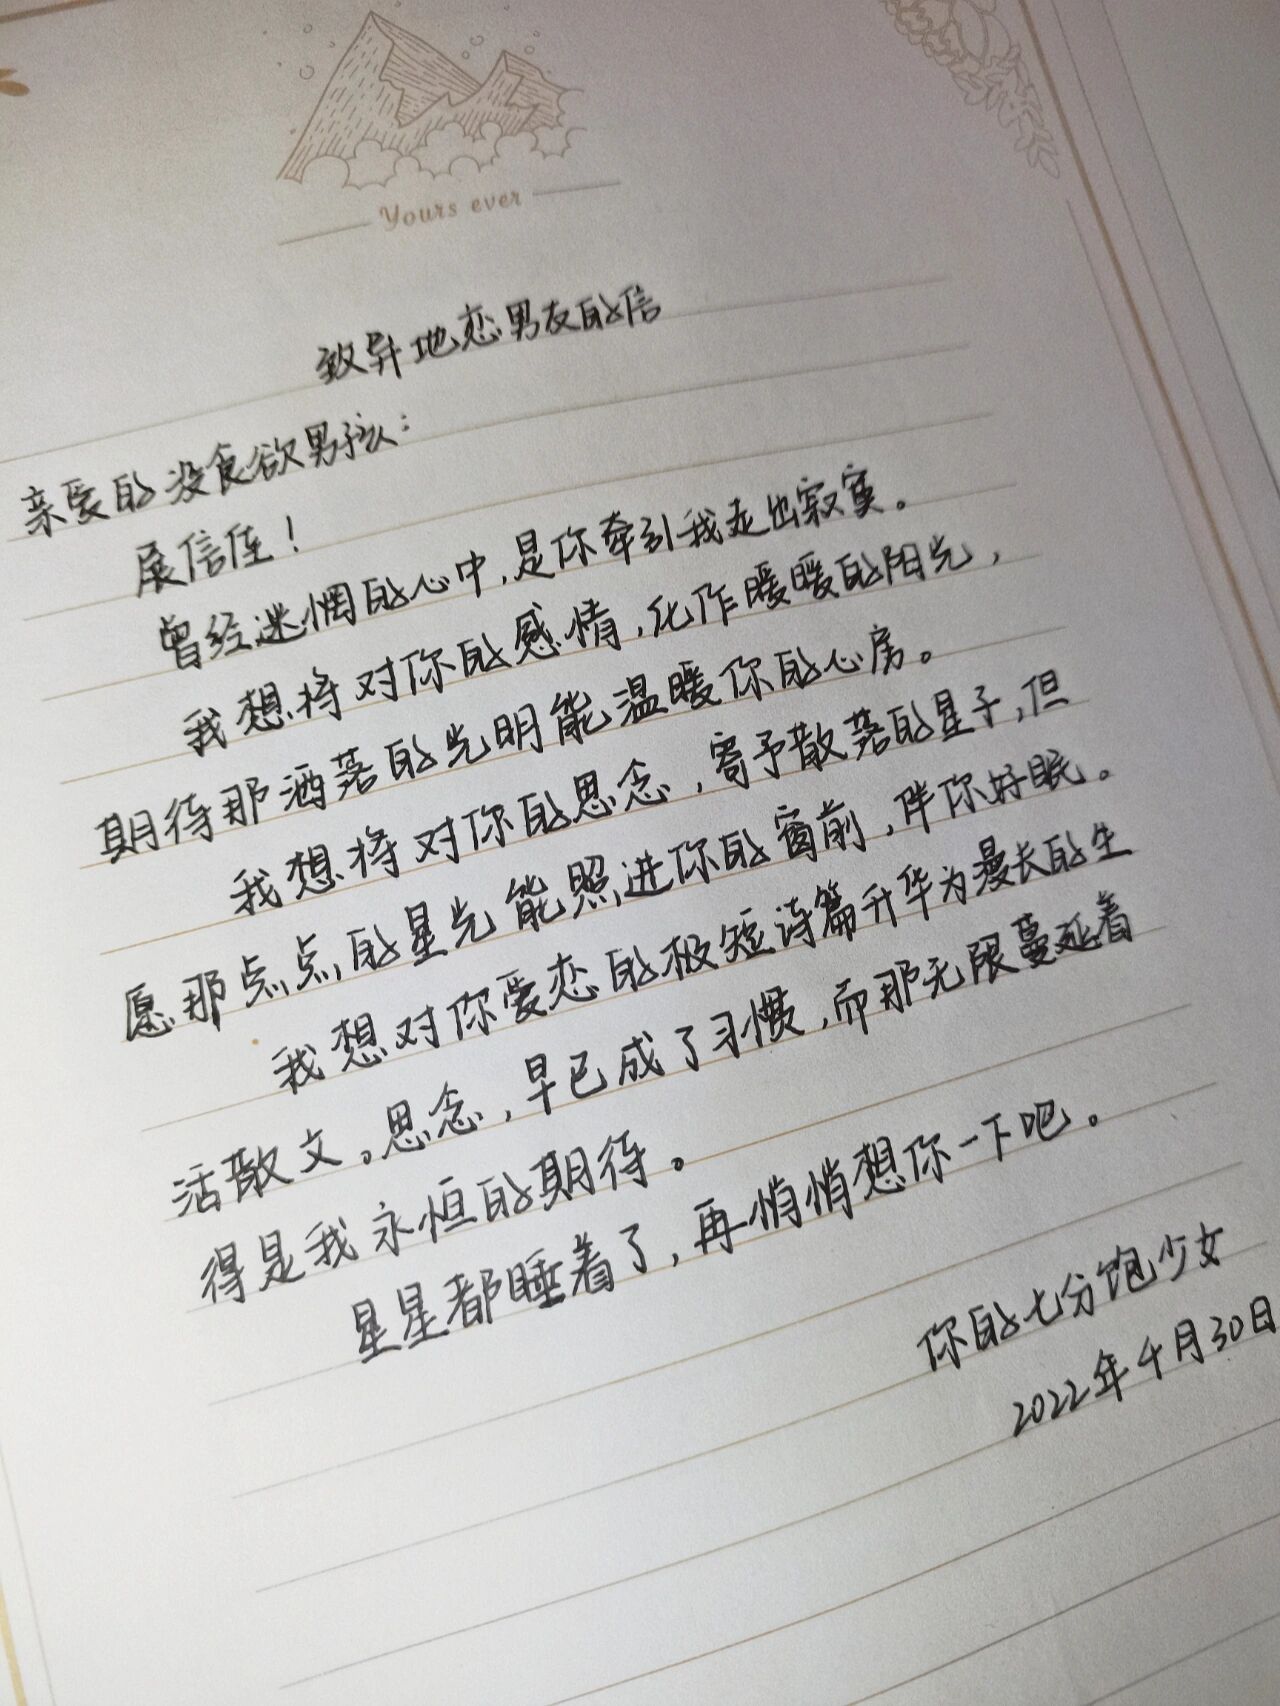 Yours ever
致异地恋男友的信
亲爱的没食欲男孩:
展信佳!
曾经迷惘的心中,是你牵引我走出寂寞。
我想将对你的感情,化作暖暖的阳光,
期待那洒落的光明能温暖你的心房。
我想将对你的思念,寄予散落的星子,但
愿那点点的星光能照进你的窗前,伴你好眠。
我想对你爱恋的极短诗篇升华为漫长的生
活散文。思念,早已成了习惯,而那无限蔓延着
得是我永恒的期待。
星星都睡着了,再悄悄想你一下吧。
你的七分饱少女
2022年4月30日